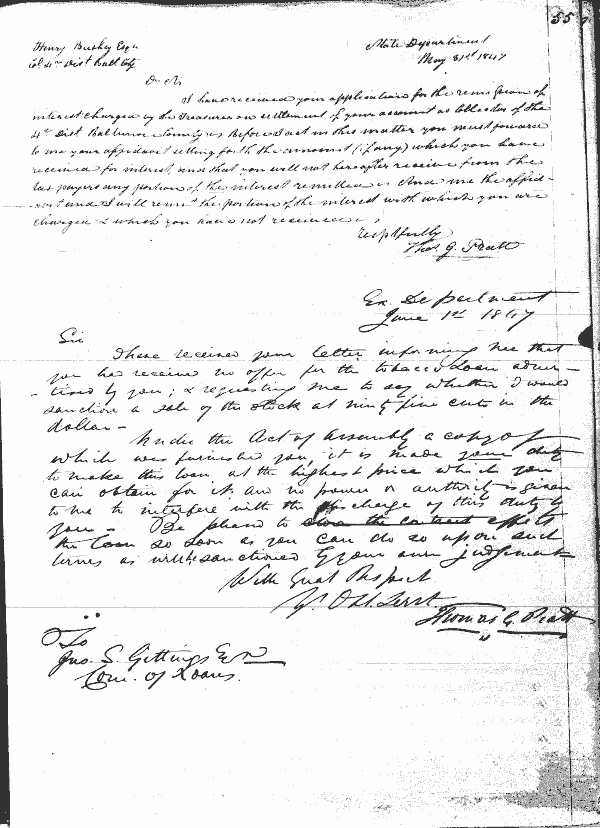 55
Henry Busky Esqr
Col 4th Dist Balt City
State Department
May 31st 1847
Dr Sir
I have received your application for the remission of
interest charged by the Treasurer on settlement of your account as Collector of the
4th Dist Baltimore County Before I act in this matter you must forward
to me your affidavit setting forth the amount (if any) which you have
received for interest, and that you will not hereafter receive from the
tax payers any portion of the interest remitted. Send me the affid-
-avit and I will remit the portion of the interest with which you are
charged & which you have not received.
respectfully
Thos. G. Pratt
Ex. Department
June 1st 1847
Sir
I have received your letter informing me that
you had received no offer for the tobacco Loan adver-
-tised by you; & requesting me to say whether I would
sanction a sale of the stock at ninty five cents in the
dollar-
Under the Act of Assembly a copy of
which was furnished you, it is made your duty
to make this loan at the highest price which you
can obtain for it. and no power or authority is given
to me to interfere with the discharge of this duty by
you - Be pleased to effect
the loan so soon as you can do so upon such
terms as will be sanctioned by your own judgement
With Great Respect
Yr. Obt. Servt
Thomas G. Pratt
To
Jno. S. Gittings Esqr
Com. of Loans.